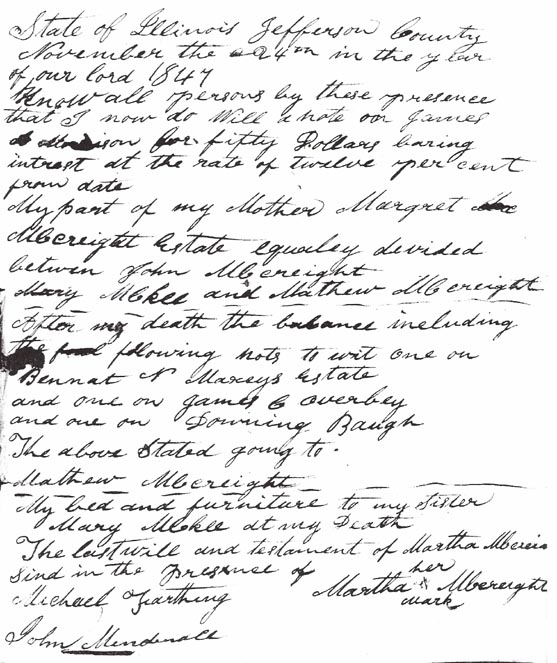 State of Illinois Jefferson County
November the 24th in the year
of our lord 1847
Know all persons by these presence
that I now do Will a note on James
Madison for fifty Dollars baring
intrest at the rate of twelve per cent
from date
My part of my Mother Margret
Mcreight Estate equaley devided
betwen John Mcreight
Mary Mckee and Mathew Mcreight
After my death the balance including
the flowing nots to wit one on
Bennat N Maxeys Estate
and one on James C Overbey
and one on Downing Baugh
The above Stated going to
Mathew Mcreight
My bed and furniture to my Sister
Mary Mckee at my Death
The last will and testament of Martha
Sind in the presence of her
Martha X Mcreight
mark
Michael Farthing
John Mendenall